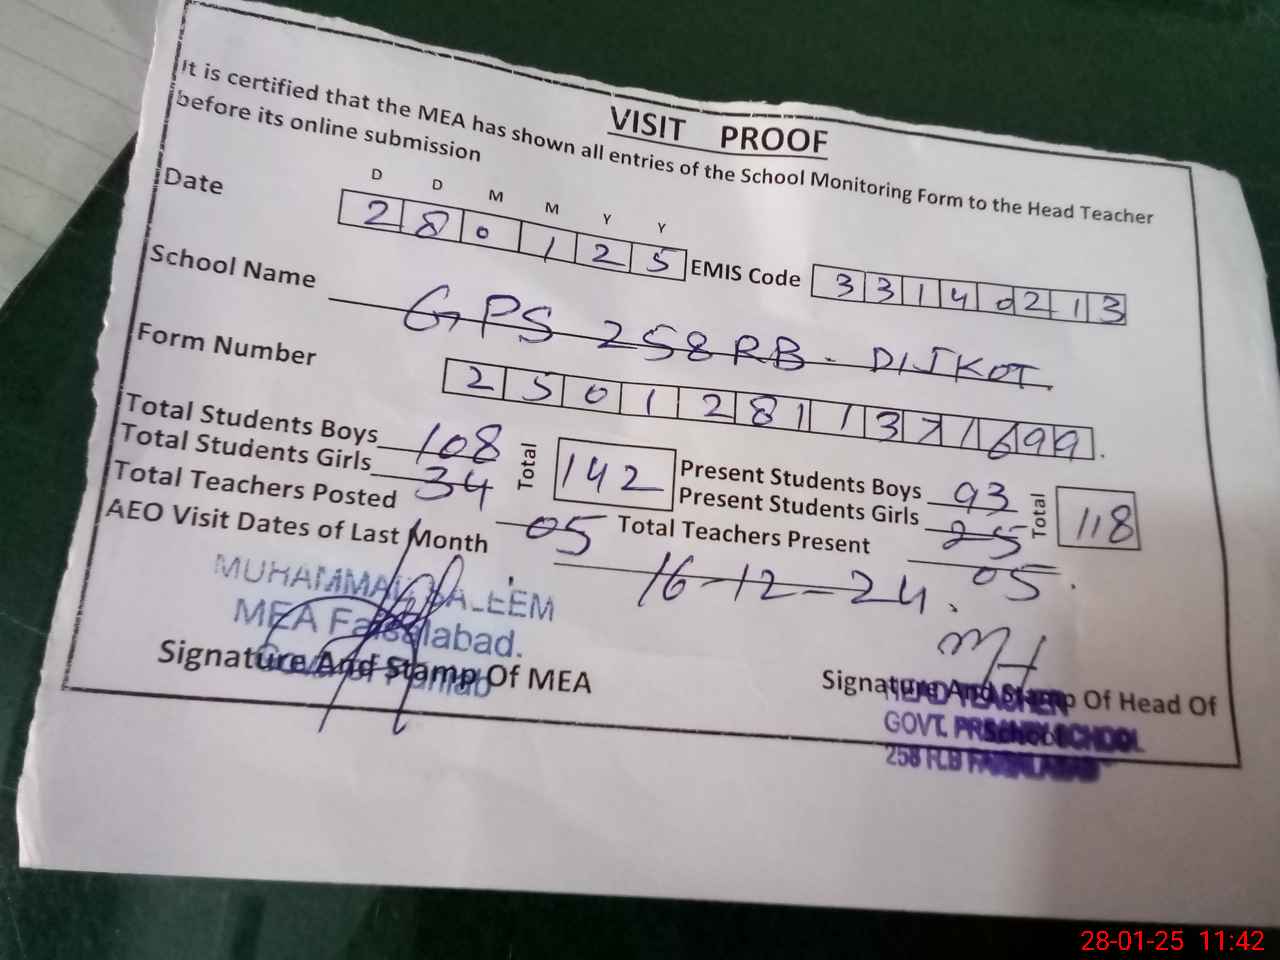 VISIT PROOF
It is certified that the MEA has shown all entries of the School Monitoring Form to the Head Teacher
before its online submission
D D M M Y Y
Date 2 8 0 1 2 5 EMIS Code 3 3 1 4 0 2 1 3
School Name GPS 258 RB - DIJKOT.
Form Number 2 5 0 1 2 8 1 1 3 7 1 6 9 9.
Total Students Boys 108 Total 142 Present Students Boys 93 Total 118
Total Students Girls 34 Present Students Girls 25
Total Teachers Posted 05 Total Teachers Present 05.
AEO Visit Dates of Last Month 16-12-24.
MUHAMMAD SALEEM
MEA Faisalabad.
Govt of Punjab
Signature And Stamp Of MEA
Signature And Stamp Of Head Of
School
HEAD TEACHER
GOVT. PRIMARY SCHOOL
258 R.B FAISALABAD
28-01-25 11:42